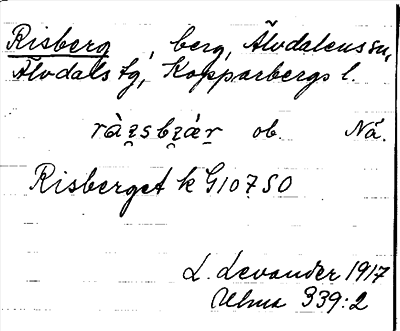 Risberg, berg, Älvdalens sn,
Älvdals tg, Kopparbergs l.
ob. Nå.
Risberget k G107 SO
L. Levander 1917
Ulma 339:2